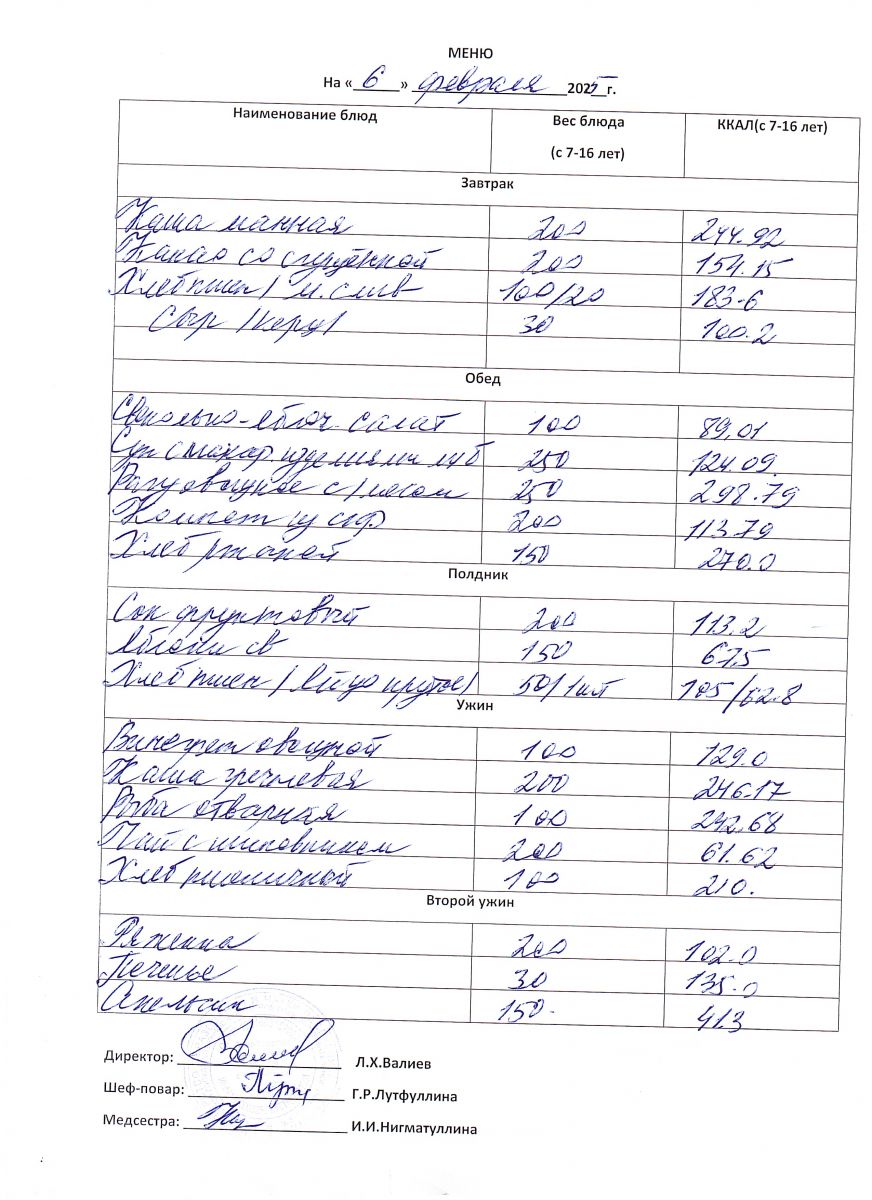 МЕНЮ
На « 6 » февраля 2025 г.
Наименование блюд Вес блюда (с 7-16 лет) ККАЛ(с 7-16 лет)
Завтрак
Каша манная 200 244.92
Какао со сгущенкой 200 154.15
Хлеб пшен / м.слив 100/20 183-6
Сыр /керц/ 30 100.2
Обед
Свекольно-яблоч. салат 100 89,01
Суп с макар. изделиями 250 124.09
Рагу овощное с/мясом 250 298.79
Компот с/ф 200 113.79
Хлеб ржаной 150 270.0
Полдник
Сок фруктовый 200 113.2
Яблоки св 150 67,5
Хлеб пшен / яйцо крутое/ 50/1шт 105/62.8
Ужин
Винегрет овощной 100 129.0
Каша гречневая 200 246.17
Рыба отварная 100 242,68
Чай с шиповником 200 61.62
Хлеб пшеничной 100 210.
Второй ужин
Ряженка 200 102.0
Печенье 30 135.0
Апельсин 150. 41.3
Директор: Л.Х.Валиев
Шеф-повар: Г.Р.Лутфуллина
Медсестра: И.И.Нигматуллина